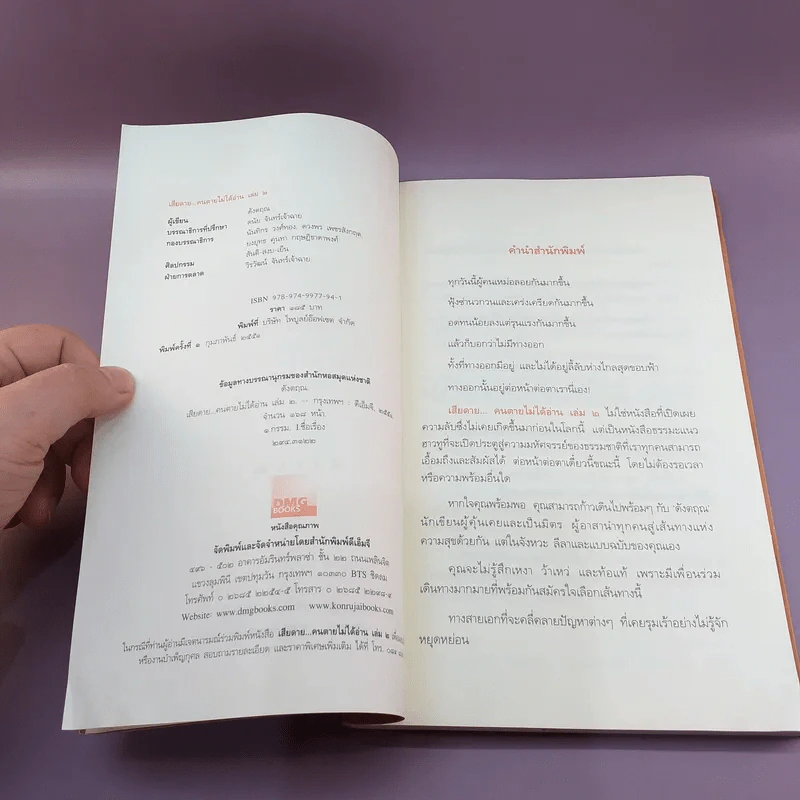 เสียดาย...คนตายไม่ได้อ่าน เล่ม ๒
ผู้เขียน ดังตฤณ
บรรณาธิการที่ปรึกษา ดนัย จันทร์เจ้าฉาย
กองบรรณาธิการ นันทิกร วงศ์ทอง, ดวงพร เพชรสังกฤต
ยงยุทธ
ศิลปกรรม สันติ-สงบ-เย็น
ฝ่ายการตลาด วิรวัฒน์ จันทร์เจ้าฉาย
ISBN 978-974-9977-94-1
ราคา ๑๘๕ บาท
พิมพ์ที่ บริษัท ไพบูลย์อ๊อฟเซต จำกัด
พิมพ์ครั้งที่ ๑ กุมภาพันธ์ ๒๕๕๑
ข้อมูลทางบรรณานุกรมของสำนักหอสมุดแห่งชาติ
ดังตฤณ.
เสียดาย...คนตายไม่ได้อ่าน เล่ม ๒. -- กรุงเทพฯ : ดีเอ็มจี, ๒๕๕๑.
จำนวน ๑๖๘ หน้า
๑.กรรม. I.ชื่อเรื่อง
๒๙๔.๓๑๒๒
DMG
BOOKS
หนังสือคุณภาพ
จัดพิมพ์และจัดจำหน่ายโดยสำนักพิมพ์ดีเอ็มจี
๔๙๖ - ๕๐๒ อาคารอัมรินทร์พลาซ่า ชั้น ๒๒ ถนนเพลินจิต
แขวงลุมพินี เขตปทุมวัน กรุงเทพฯ ๑๐๓๓๐ BTS ชิดลม
โทรศัพท์ ๐ ๒๖๘๕ ๒๒๕๔-๕ โทรสาร ๐ ๒๖๘๕
Website: www.dmgbooks.com www.konrujaibooks.com
ในกรณีที่ท่านผู้อ่านมีเจตนารมณ์ร่วมพิมพ์หนังสือ เสียดาย...คนตายไม่ได้อ่าน เล่ม ๒
หรืองานบำเพ็ญกุศล สอบถามรายละเอียด และราคาพิเศษเพิ่มเติม ได้ที่ โทร.
คำนำสำนักพิมพ์
ทุกวันนี้ผู้คนเหม่อลอยกันมากขึ้น
ฟุ้งซ่านวกวนและเคร่งเครียดกันมากขึ้น
อดทนน้อยลงแต่รุนแรงกันมากขึ้น
แล้วก็บอกว่าไม่มีทางออก
ทั้งที่ทางออกมีอยู่ และไม่ได้อยู่ลี้ลับห่างไกลสุดขอบฟ้า
ทางออกนั้นอยู่ต่อหน้าต่อตาเรานี่เอง!
เสียดาย... คนตายไม่ได้อ่าน เล่ม ๒ ไม่ใช่หนังสือที่เปิดเผย
ความลับซึ่งไม่เคยเกิดขึ้นมาก่อนในโลกนี้ แต่เป็นหนังสือธรรมะแนว
ฮาวทูที่จะเปิดประตูสู่ความมหัศจรรย์ของธรรมชาติที่เราทุกคนสามารถ
เอื้อมถึงและสัมผัสได้ ต่อหน้าต่อตาเดี๋ยวนี้ขณะนี้ โดยไม่ต้องรอเวลา
หรือความพร้อมอื่นใด
หากใจคุณพร้อมพอ คุณสามารถก้าวเดินไปพร้อมๆ กับ ‘ดังตฤณ’
นักเขียนผู้คุ้นเคยและเป็นมิตร ผู้อาสานำทุกคนสู่เส้นทางแห่ง
ความสุขด้วยกัน แต่ในจังหวะ ลีลาและแบบฉบับของคุณเอง
คุณจะไม่รู้สึกเหงา ว้าเหว่ และท้อแท้ เพราะมีเพื่อนร่วม
เดินทางมากมายที่พร้อมกันสมัครใจเลือกเส้นทางนี้
ทางสายเอกที่จะคลี่คลายปัญหาต่างๆ ที่เคยรุมเร้าอย่างไม่รู้จัก
หยุดหย่อน